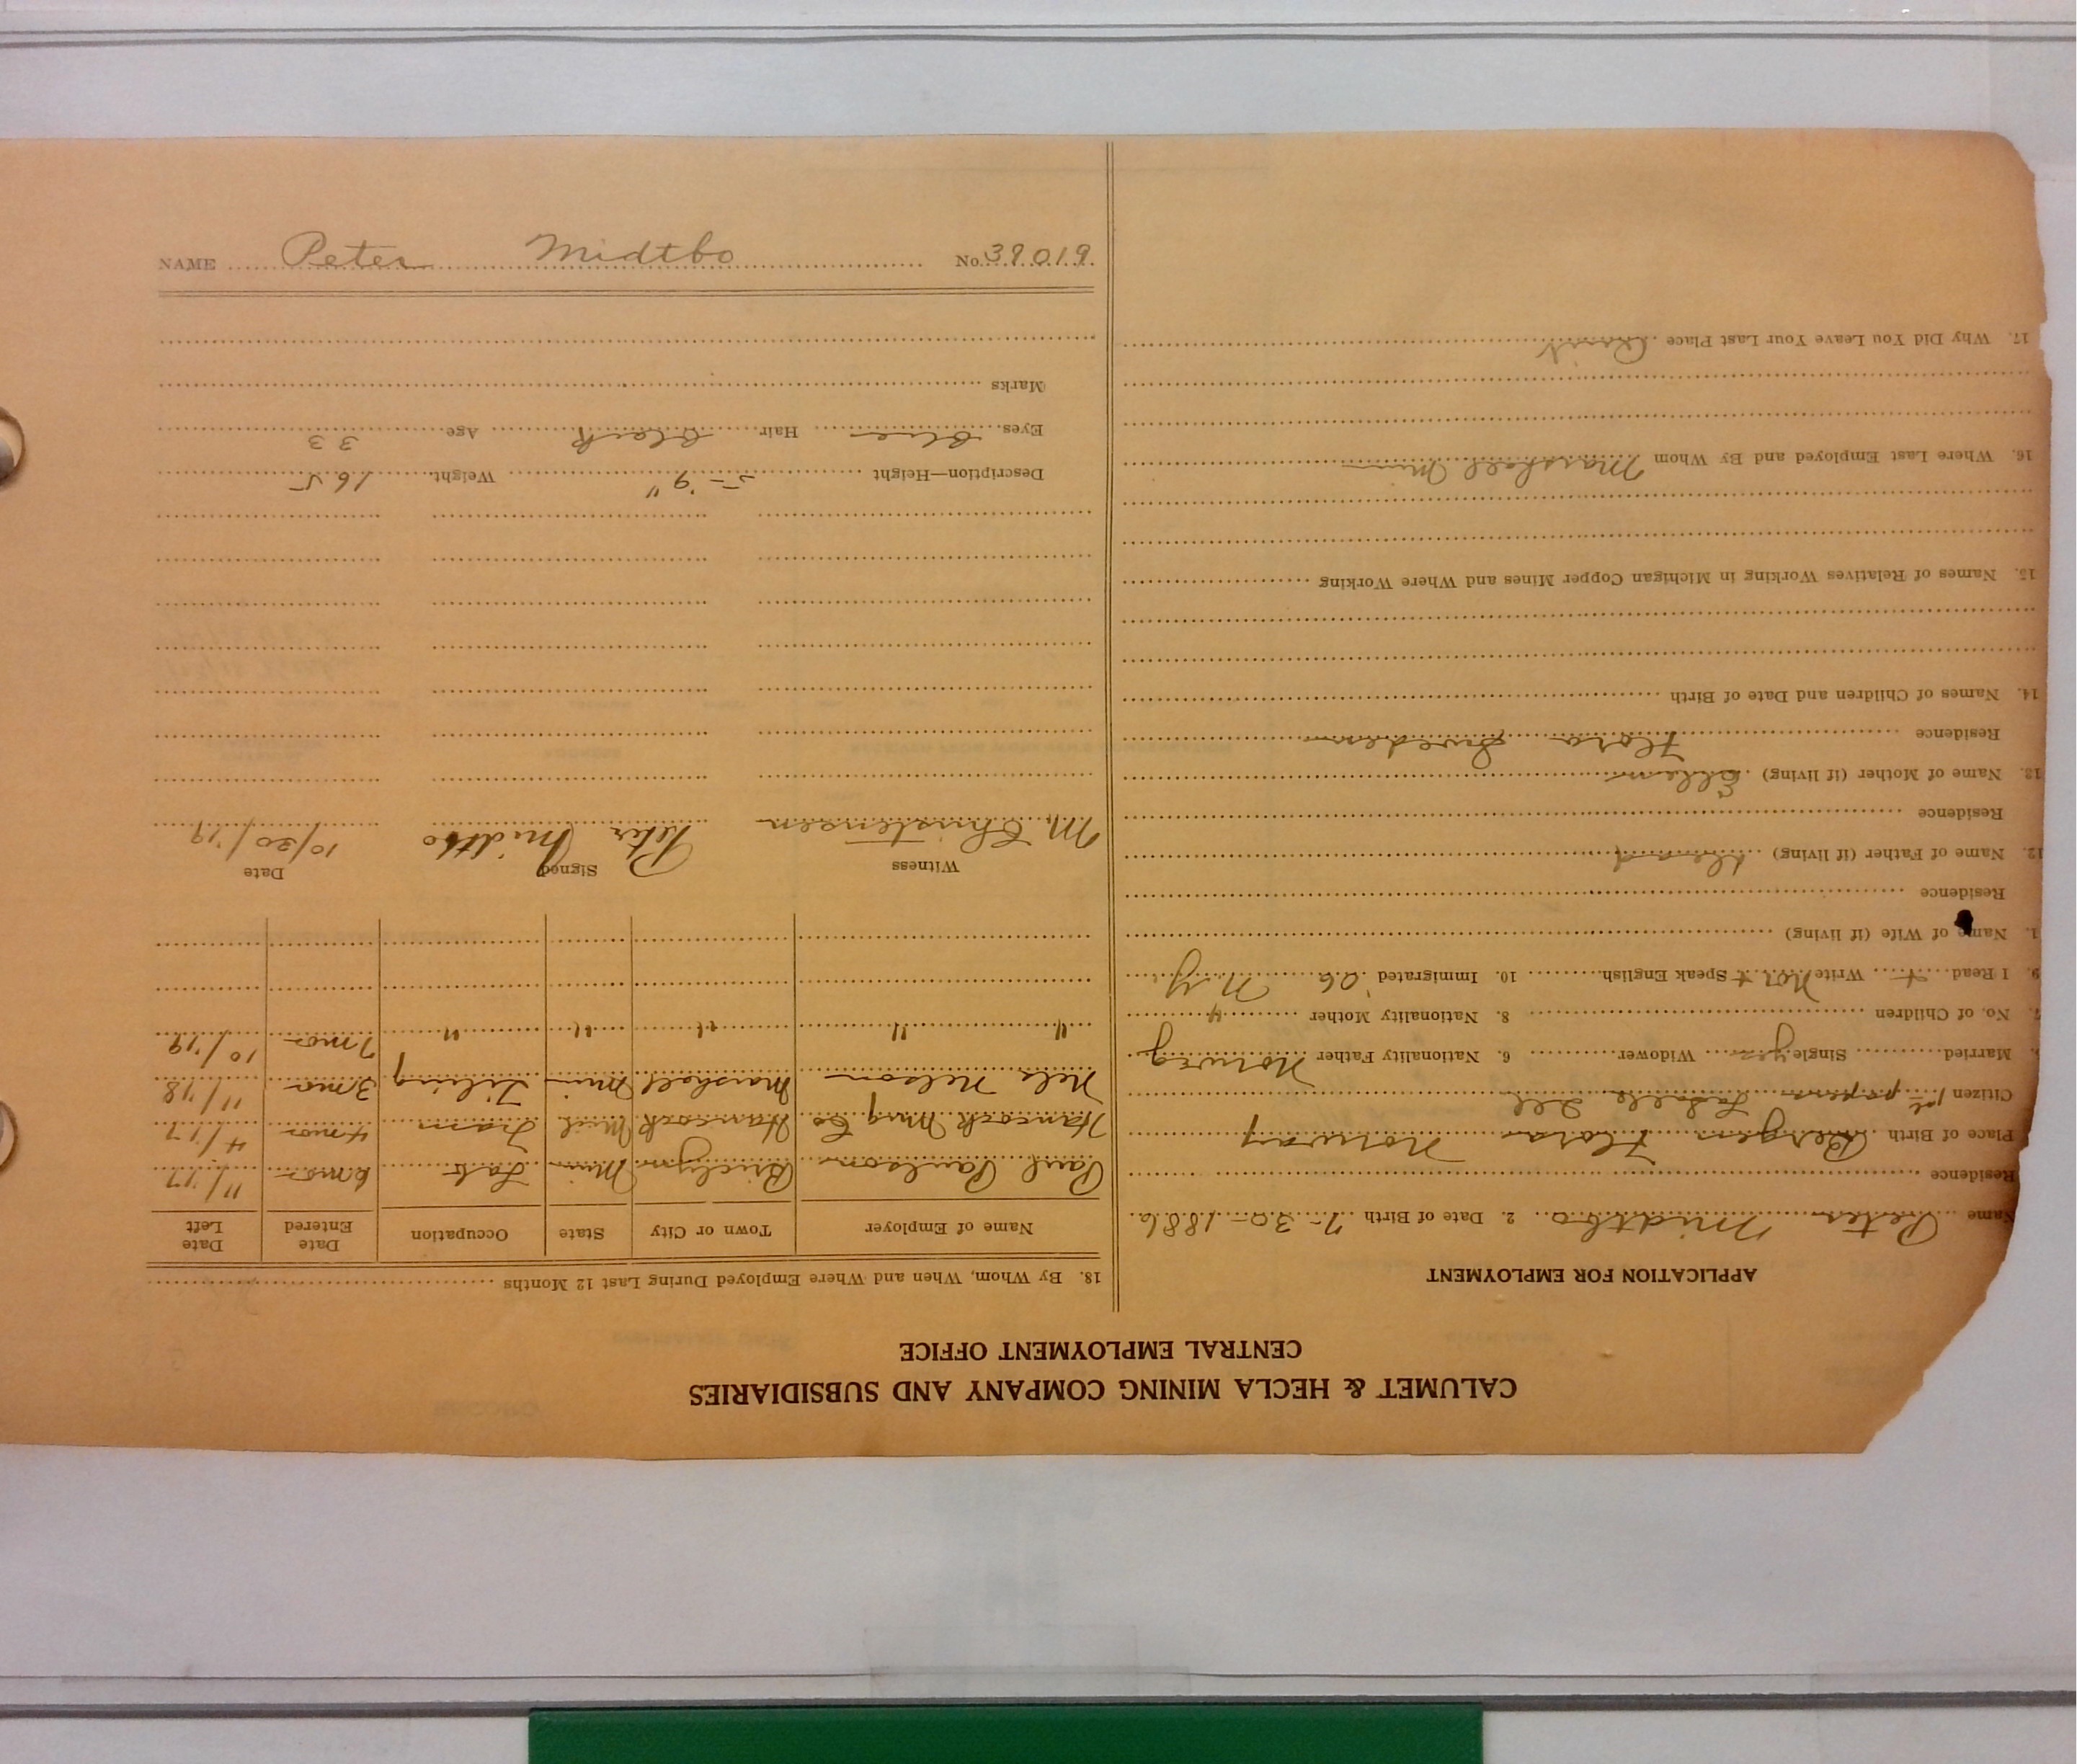 CALUMET & HECLA MINING COMPANY AND SUBSIDIARIES
CENTRAL EMPLOYMENT OFFICE
APPLICATION FOR EMPLOYMENT
Name Peter Midtbo 2. Date of Birth 7-30-1886
Residence
Place of Birth Bergen Flora Norway
Citizen 1st papers Ill
Married Single yes Widower 6. Nationality Father Norweg
7. No. of Children 8. Nationality Mother "
9. I Read + Write Nor + Speak English 10. Immigrated '06 N.Y.
1. Name of Wife (if living)
Residence
12. Name of Father (if living) dead
Residence
13. Name of Mother (if living) Ellen
Residence Flora Sweden
14. Names of Children and Date of Birth
15. Names of Relatives Working in Michigan Copper Mines and Where Working
16. Where Last Employed and By Whom Marshall Minn
17. Why Did You Leave Your Last Place
18. By Whom, When and Where Employed During Last 12 Months
Name of Employer Town or City State Occupation Date Entered Date Left
Paul Paulson Minn Lab 6 mos 11/'17
Hancock Mng Co Hancock Mich Tram 4 mos 4/'17
Nels Nelson Marshall Minn Tiling 3 mos 11/'18
" " " " " 7 mos 10/'19
Witness Signed Date
M. Christensen Peter Midtbo 10/20/'19
Description—Height 5-9" Weight 165
Eyes blue Hair black Age 33
Marks
NAME Peter Midtbo No. 39019